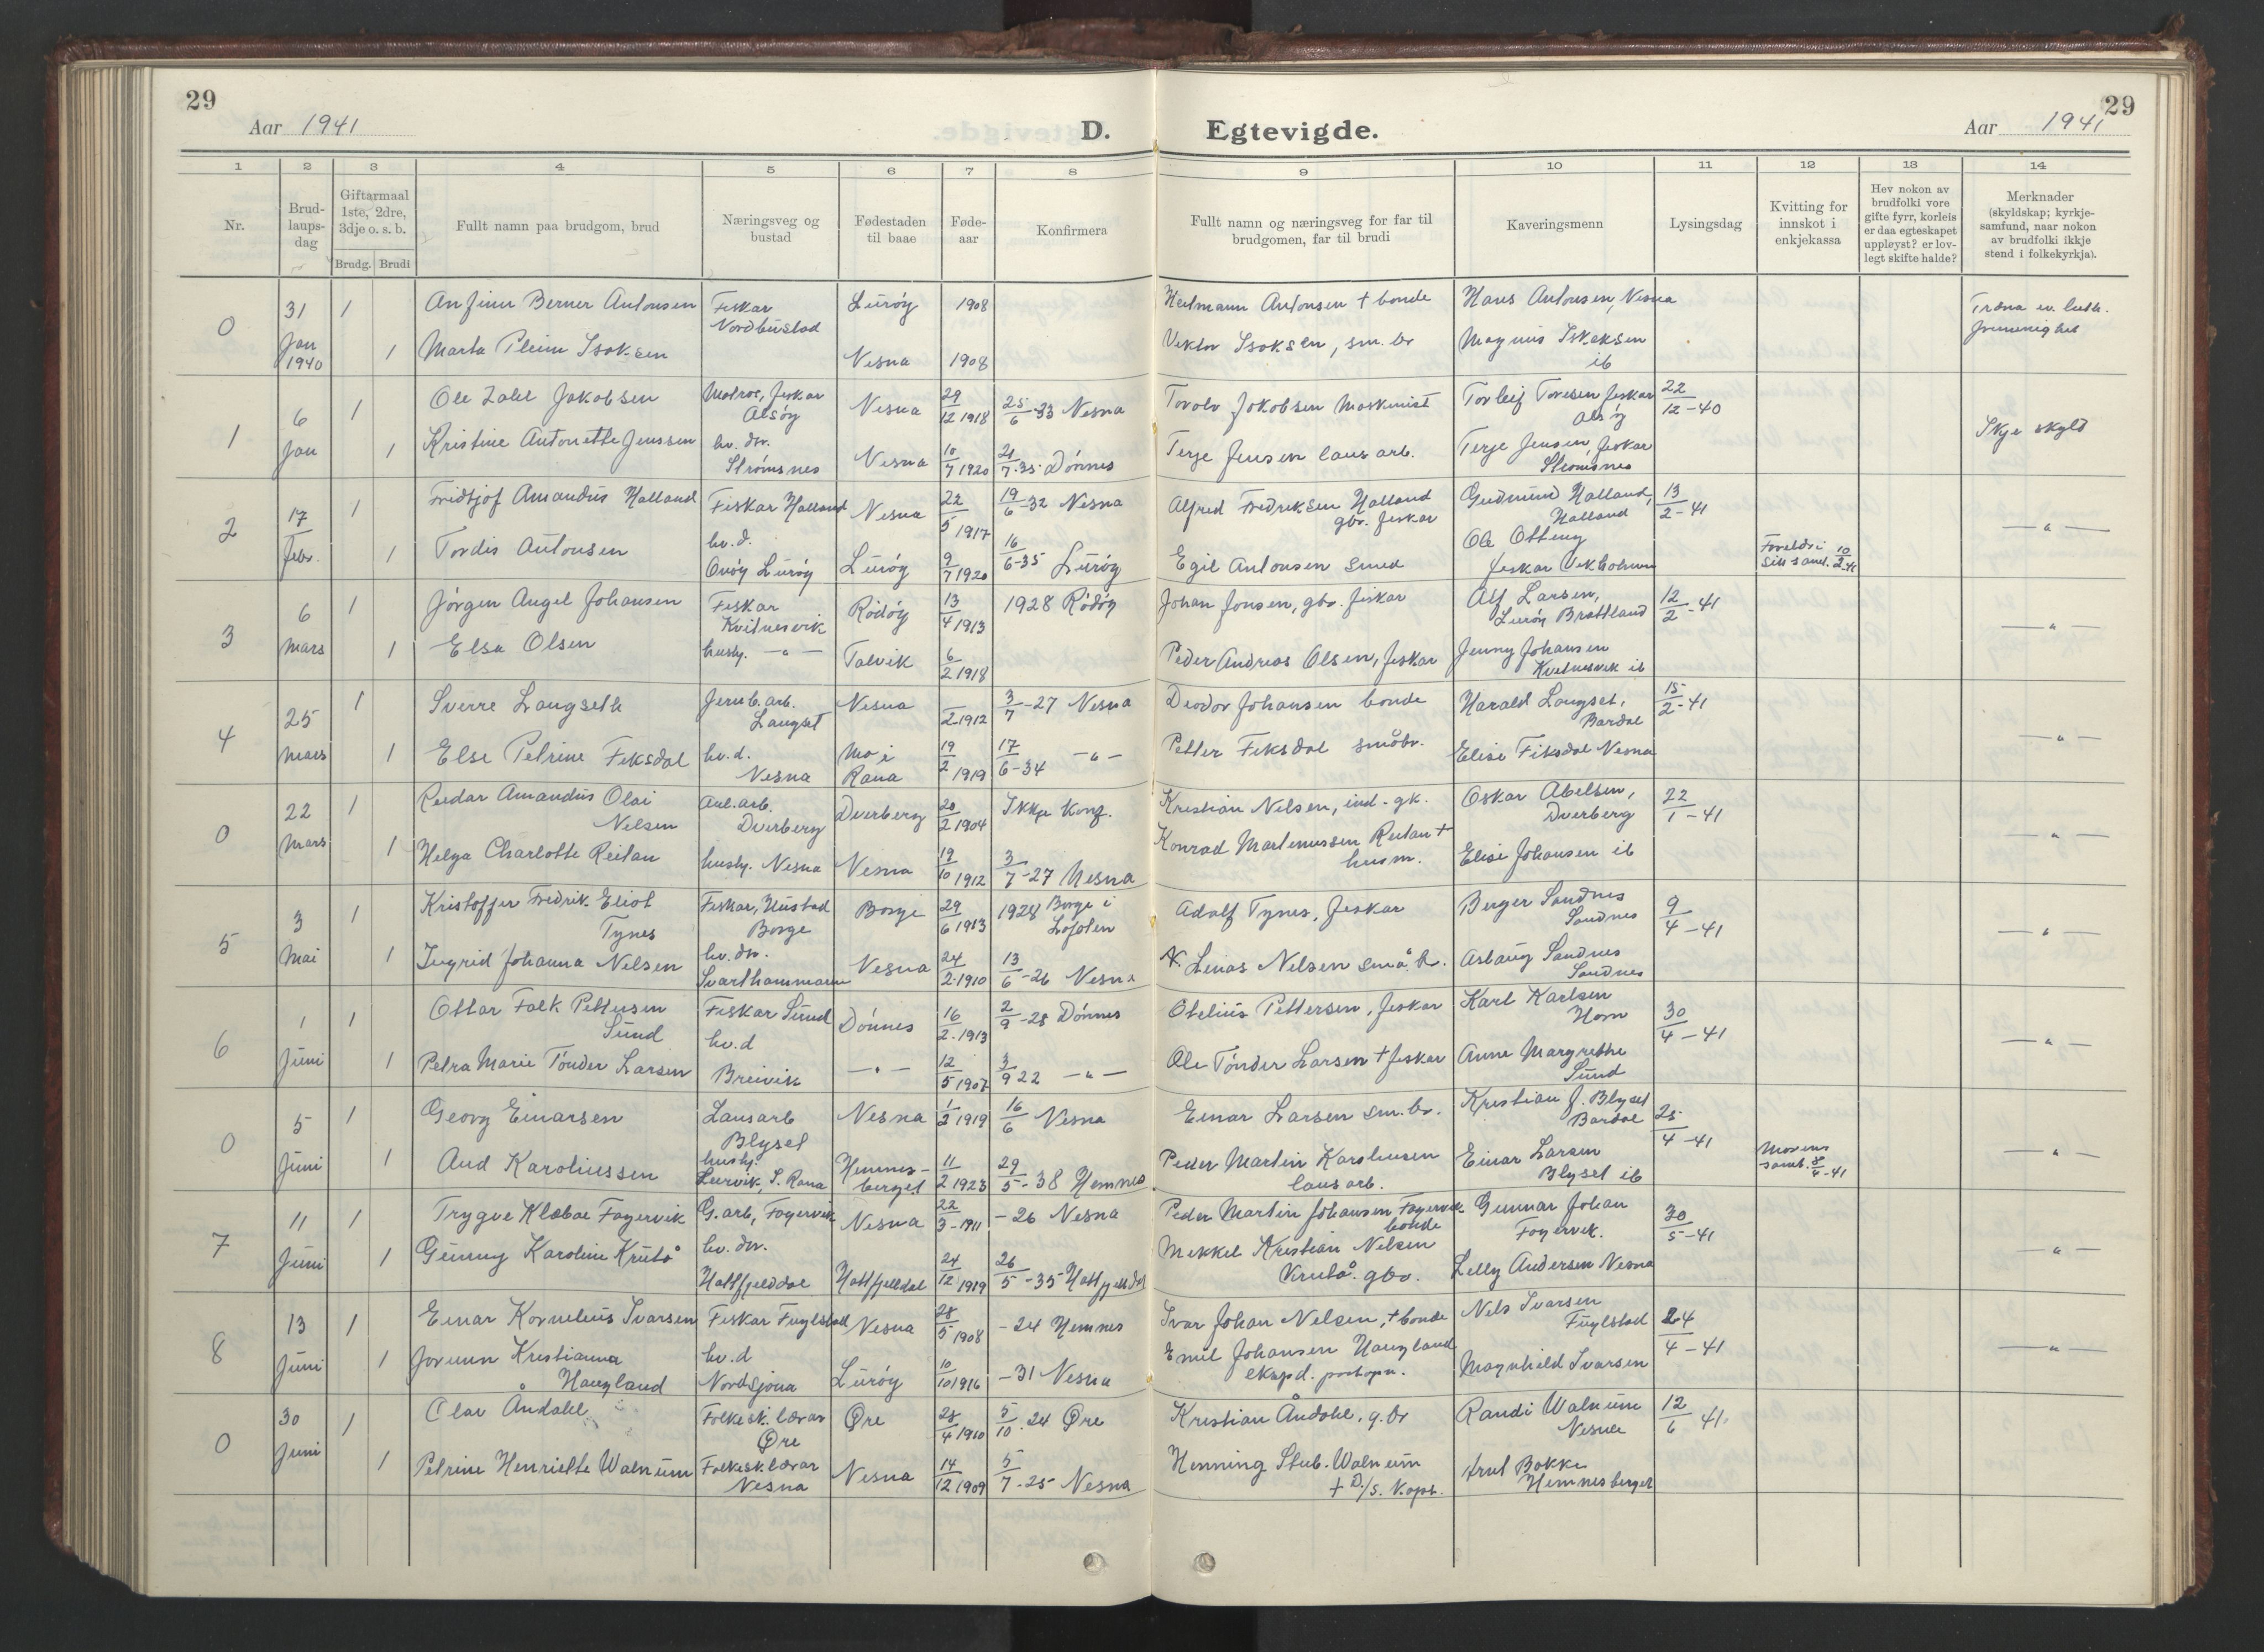 29
Aar 1941
D.
1 2 3 4 5 6 7 8
Nr.
Brud-
laups-
dag
Giftarmaal
1ste, 2dre,
3dje o. s. b.
Brudg. Brudi
Fullt namn paa brudgom, brud
Næringsveg og
bustad
Fødestaden
til baae
Føde-
aar
Konfirmera
0 31 Jan 1940
1 Anfinn Berner Antonsen Fiskar Nordbustad Lurøy 1908
1 Marta Isaksen Nesna 1908
1 6 Jan
1 Ole Zahl Jakobsen Matros, fiskar Alsøy Nesna 29/12 1918 25/6-33 Nesna
1 Kristine Antonette Jenssen hv. dr. Strømsnes Nesna 10/7 1920 21/7-35 Dønnes
2 17 febr.
1 Fridtjof Amandus Halland Fiskar Halland Nesna 22/5 1917 19/6-32 Nesna
1 Tordis Antonsen hv. d. Onøy Lurøy Lurøy 9/7 1920 16/6-35 Lurøy
3 6 Mars
1 Jørgen Angel Johansen Fiskar Kvitnesvik Rødøy 13/4 1913 1928 Rødøy
1 Elsa Olsen hushj. -"- Talvik 6/2 1918
4 25 Mars
1 Sverre Langseth Jernb. arb. Langset Nesna /2 1912 3/7-27 Nesna
1 Else Petrine Fiksdal hv. d. Nesna Mo i Rana 19/2 1919 17/6-34 -"-
0 22 Mars
1 Reidar Amandus Olai Nelsen Anl. arb. Dverberg Dverberg 20/2 1904 Ikkje konf.
1 Helga Charlotte Reitan hushj. Nesna Nesna 19/10 1912 3/7-27 Nesna
5 3 Mai
1 Kristoffer Fredrik Eliot Tynes Fiskar, Ustad Borge Borge 29/6 1913 1928 Borge i Lofoten
1 Ingrid Johanna Nelsen hv. dr. Svarthammaren Nesna 24/2 1910 13/6-26 Nesna
6 1 Juni
1 Ottar Falk Pettersen Sund Fiskar Sund Dønnes 16/2 1913 2/9-28 Dønnes
1 Petra Marie Tønder Larsen hv. d Breivik -"- 12/5 1907 3/9 22 -"-
0 5 Juni
1 Georg Einarsen Lausarb Blyset Nesna 1/2 1919 16/6 Nesna
1 Aud Karoliussen hushj. Leirvik, S. Rana Hemnes-berget 11/2 1923 29/5-38 Hemnes
7 11 Juni
1 Trygve Klæboe Fagervik G. arb, Fagervik Nesna 22/3-1911 -26 Nesna
1 Gunny Karoline Krutå hv. dr. Hattfjelldal Hattfjelldal 24/12 1919 26/5-35 Hattfjelldal
8 13 Juni
1 Einar Kornelius Ivarsen Fiskar Fuglstad Nesna 28/5 1908 -24 Hemnes
1 Jorunn Kristianna Haugland hv. d Nordsjona Lurøy 10/10 1916 -31 Nesna
0 30 Juni
1 Olav Åndahl Folkesk. lærar Øre Øre 28/4 1910 5/10-24 Øre
1 Petrine Henriette Walnum Folkesk. lærar Nesna Nesna 14/12 1909 5/7-25 Nesna
29
Egtevigde.
Aar 1941
9 10 11 12 13 14
Fullt namn og næringsveg for far til
brudgomen, far til brudi
Kaveringsmenn
Lysingsdag
Kvitting for
innskot i
enkjekassa
Hev nokon av
brudfolki vore
gifte fyrr, korleis
er daa egteskapet
uppløyst? er lov-
legt skifte halde?
Merknader
(skyldskap; kyrkje-
samfund, naar nokon
av brudfolki ikkje
stend i folkekyrkja).
Hartmann Antonsen † bonde Hans Antonsen, Nesna Træna ev. luth.
Viktor Isaksen, sm. br Magnus Isaksen ib
Torolv Jakobsen Maskinist Torleif Toresen fiskar Alsøy 22/12-40
Terje Jensen lausarb. Terje Jensen, fiskar Strømsnes Ikje skyld
Alfred Fredriksen Halland gbr. fiskar Gudmund Halland, Halland 13/2-41
Egil Antonsen smed Ole Otting fiskar Vikholmen Foreldri sitt saml. 10/2-41 -"-
Johan Jonsen, gbr. fiskar Alf Larsen, Lurøy Brattland 12/2-41
Peder Andreas Olsen, fiskar Jenny Johansen Kvitnesvik ib -"-
Deodor Johansen bonde Harald Langset, Bardal 15/2-41
Petter Fiksdal småbr. Elise Fiksdal Nesna -"-
Kristian Nelsen, ind.-gk. Oskar Abelsen, Dverberg 22/1-41
Konrad Martenussen Reitan † husm. Elise Johansen ib -"-
Adolf Tynes, fiskar Berger Sandnes Sandnes 9/4-41
Linas Nelsen små b. Aslaug Sandnes Sandnes -"-
Otelius Pettersen, fiskar Karl Karlsen Horn 30/4-41
Ole Tønder Larsen † fiskar Anne Margrethe Sund -"-
Einar Larsen sm. br. Kristian J. Blyset Bardal 25/4-41
Peder Martin Karoliussen lausarb. Einar Larsen Blyset ib Morens samt. 8/4-41 -"-
Peder Martin Johansen Fagervik bonde Gunnar Johan Fagervik. 30/5-41
Mekkel Kristian Nelsen Krutå. gbr. Lilly Andersen Nesna -"-
Ivar Johan Nelsen, † bonde Nels Ivarsen Fuglstad 24/4-41
Emil Johansen Haugland eksped. postopn. Magnhild Ivarsen -"-
Kristian Åndahl, g. br Randi Walnum Nesna 12/6 41.
Henning Stub. Walnum † D/S. Kapt. Arnt Bakke Hemnesberget